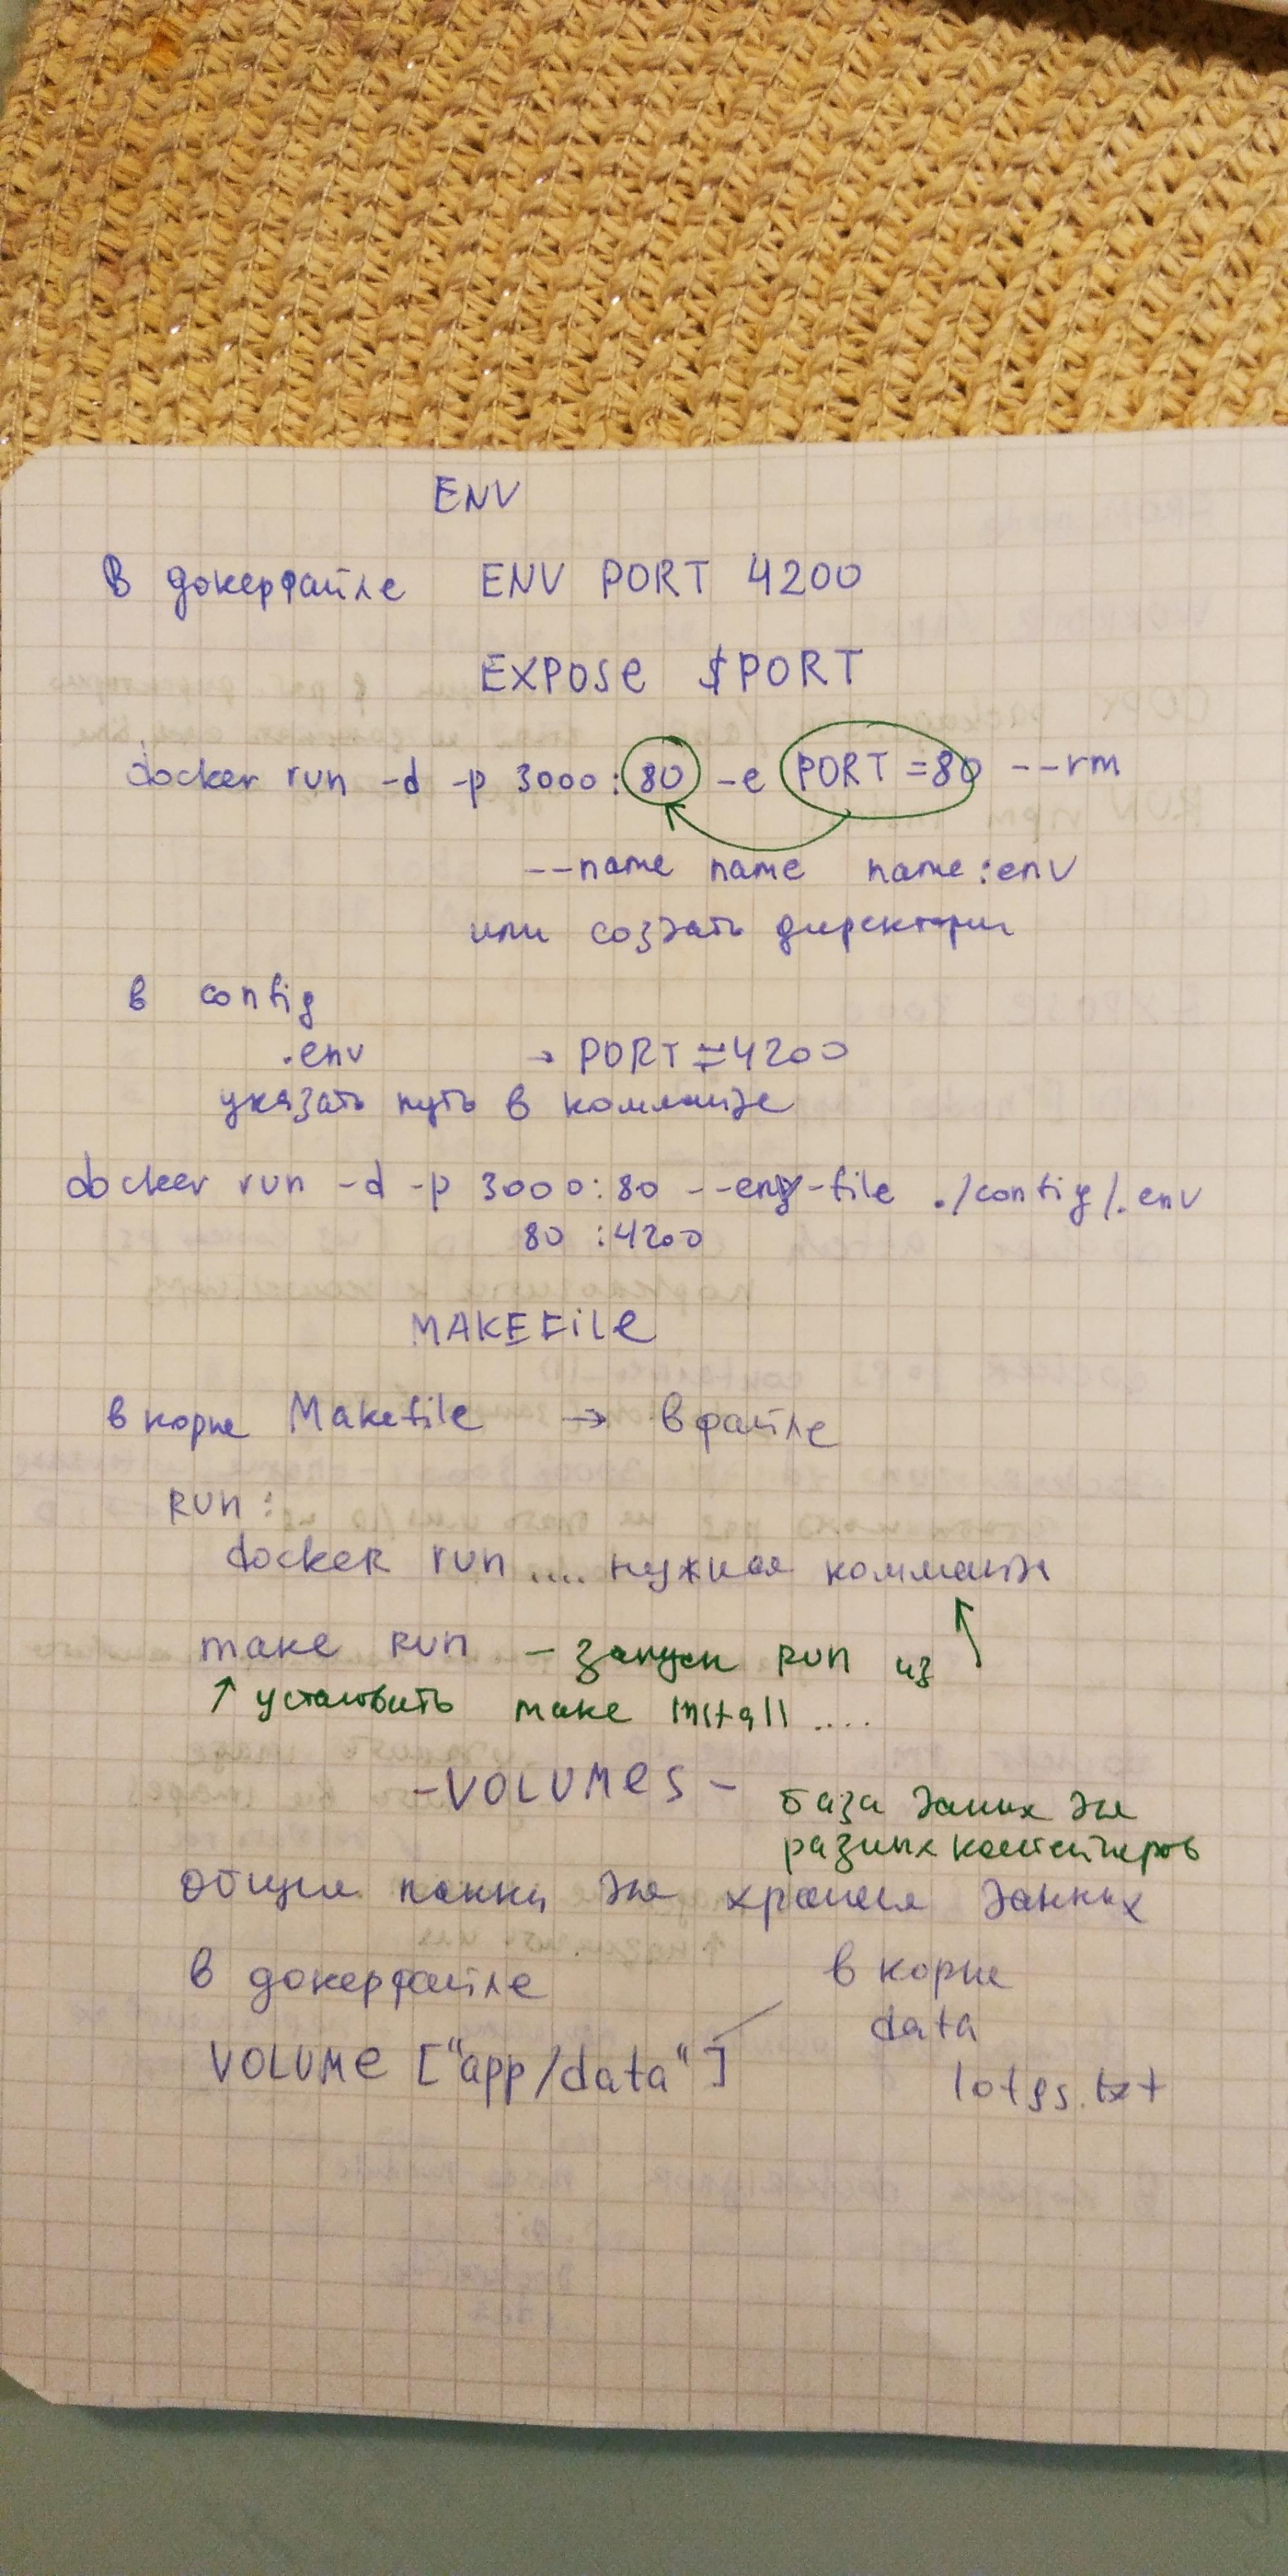 ENV
В докерфайле ENV PORT 4200
EXPOSE $PORT
docker run -d -p 3000:80 -e PORT=80 --rm
--name name name:env
или создать директори
в config
.env → PORT=4200
указать путь в комманде
docker run -d -p 3000:80 --env-file ./config/.env
80 :4200
MAKEFile
в корне Makefile → в файле
RUN:
docker run .... нужная комманда
make RUN - запуск RUN из ↑
↑ установить make install ....
-VOLUMES-
база даних для
разных контейнеров
общие папки для хранения данных
в докерфайле
в корне
data
VOLUME ["app/data"]